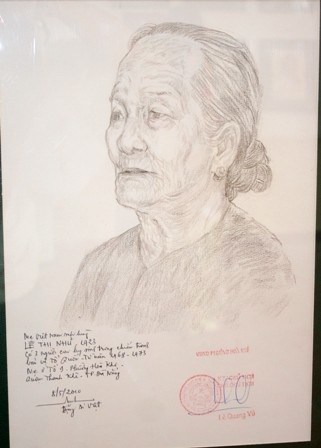 Mẹ Việt Nam anh hùng
LÊ THỊ NHƯ, 1923
Có 2 người con hy sinh trong chiến tranh
bảo vệ Tổ Quốc - Từ năm 1968 - 1973
Mẹ ở Tổ 9 - Phường Hòa Khê
Quận Thanh Khê - TP Đà Nẵng
8/5/2010
Đặng Ái Việt
Lê Quang Vũ